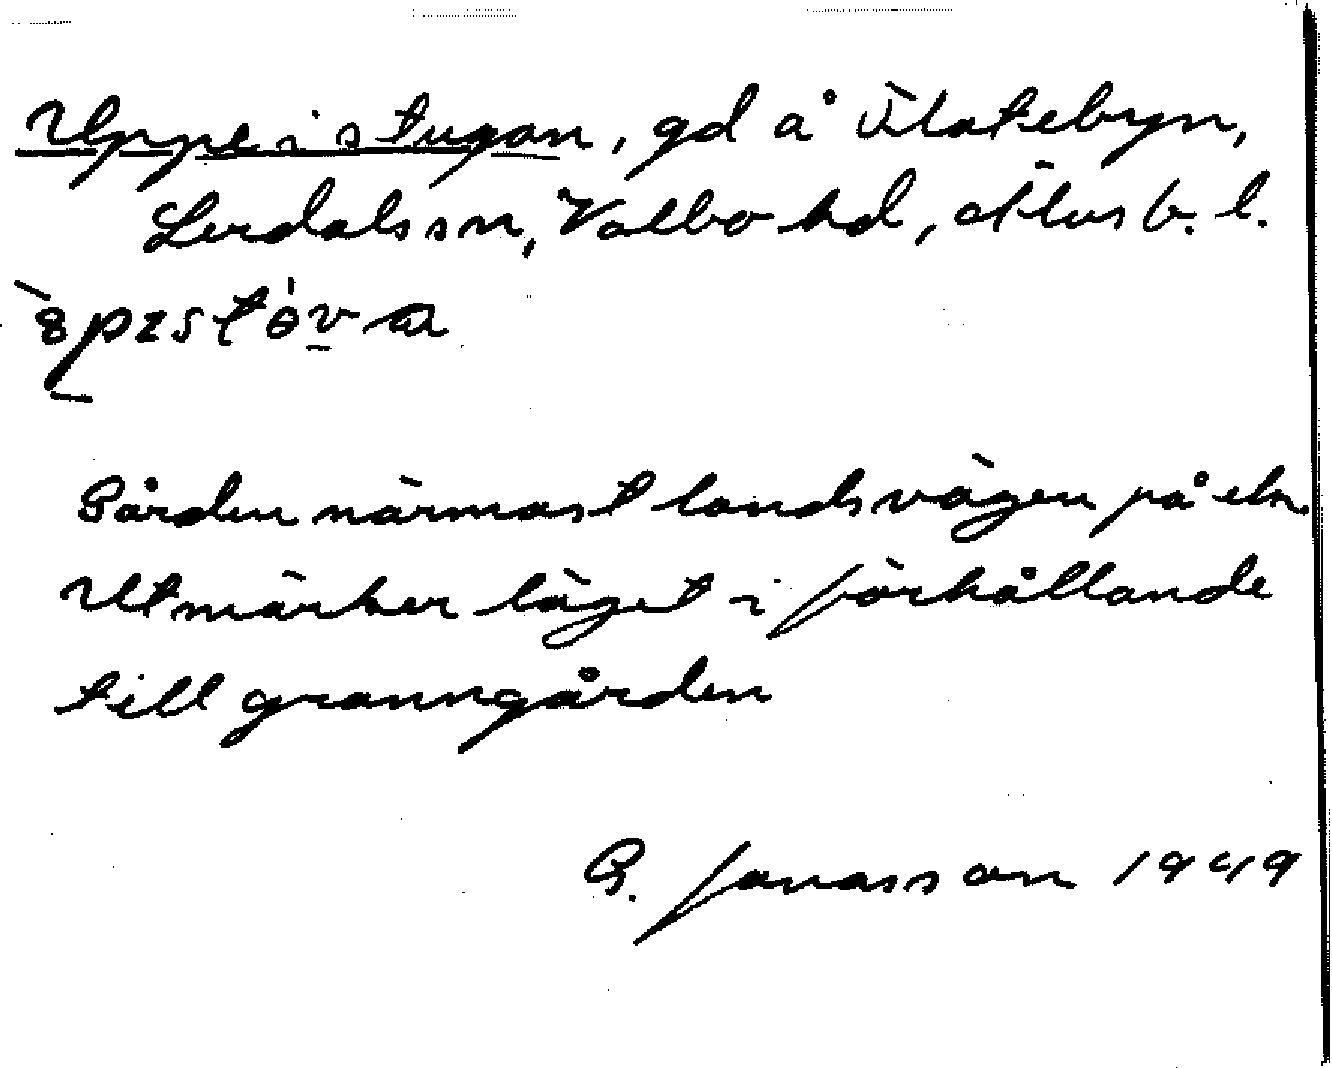 Uppe i stugan, gd å Vlatebryn,
Lerdals sn, Valbo hd, Älvsb. l.
Gården närmast landsvägen på ebn.
Utmärker läget i förhållande
till granngården
G. Jonasson 1949